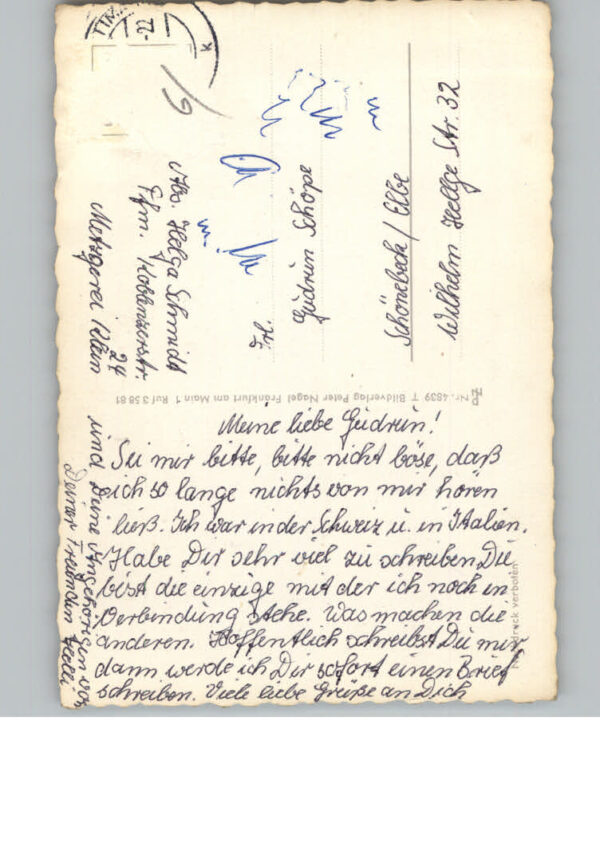 Meine liebe Gudrun!
Sei mir bitte, bitte nicht böse, daß
ich so lange nichts von mir hören
ließ. Ich war in der Schweiz u. in Italien.
Habe Dir sehr viel zu schreiben Du
bist die einzige mit der ich noch in
Verbindung stehe. Was machen die
anderen. Hoffentlich schreibst Du mir,
dann werde ich Dir sofort einen Brief
schreiben. Viele liebe Grüße an Dich
und Deine Angehörigen von
Deiner Freundin
Abs. Helga Schmidt
Ffm. Koblenzerstr.
24
Metzgerei
Frl.
Gudrun Schöpe
Schönebeck / Elbe
Wilhelm Hellge Str. 32
Nr. 4839 T Bildverlag Peter Nagel Frankfurt am Main 1 Ruf 3 58 81
druck verboten
-22
K